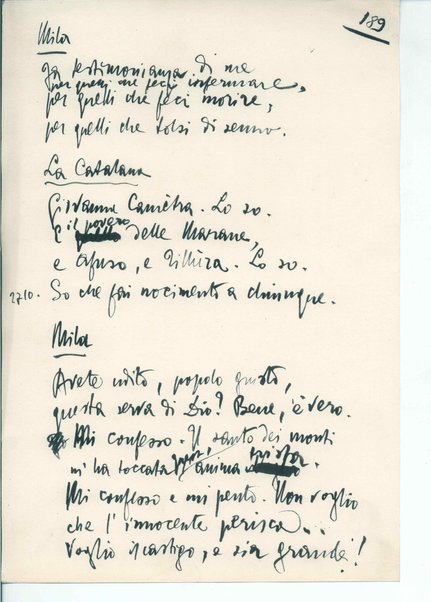 189
Mila
Fa testimonianza di me
per quelli che feci infermare,
per quelli che feci morire,
per quelli che tolsi di senno.
La Catalana
Giovanna Camètra. Lo so.
E il povero delle Marane,
e Afuso, e Tillùra. Lo so.
2710. So che fai nocimento a chiunque.
Mila
Avete udito, popolo giusto,
questa serva di Dio? Bene, è vero.
Mi confesso. Il santo dei monti
m'ha toccata anima trista.
Mi confesso e mi pento. Non voglio
che l'innocente perisca...
Voglio il castigo, e sia grande!